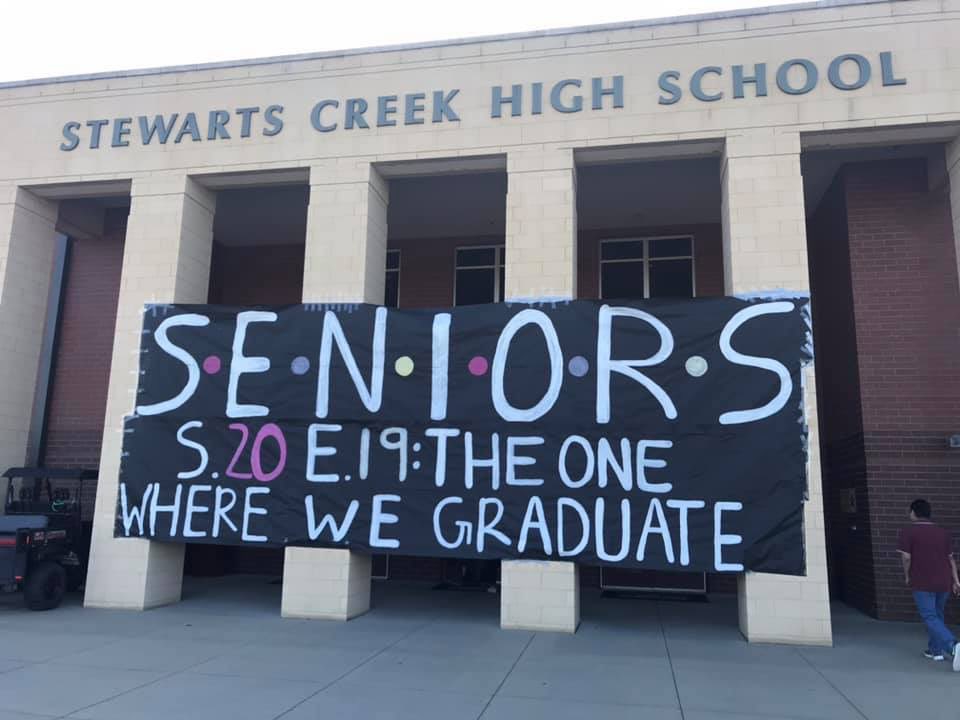 STEWARTS CREEK HIGH SCHOOL
S•E•N•I•O•R•S
S.20 E.19: THE ONE
WHERE WE GRADUATE